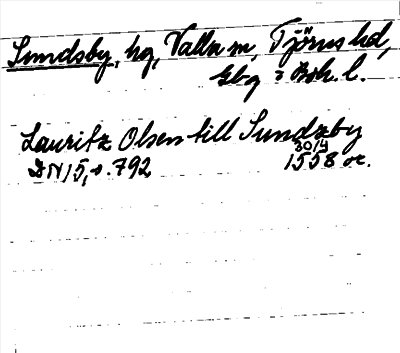 Sundsby, hg, Valla sn, Tjörns hd,
Gbg o Boh. l.
Lauritz Olsen till Sundzby
30/4
DN 15, s. 792 1558 or.